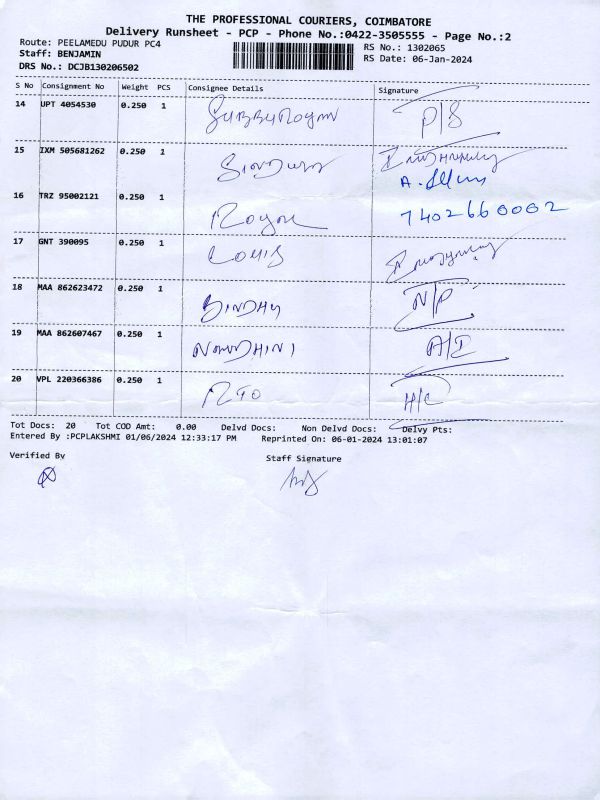 THE PROFESSIONAL COURIERS, COIMBATORE
Delivery Runsheet - PCP - Phone No.:0422-3505555 - Page No.:2
Route: PEELAMEDU PUDUR PC4 RS No.: 1302065
Staff: BENJAMIN RS Date: 06-Jan-2024
DRS No.: DCJB130206502
S No Consignment No Weight PCS Consignee Details Signature
14 UPT 4054530 0.250 1 P/S
15 IXM 505681262 0.250 1
16 TRZ 95002121 0.250 1 7402660002
17 GNT 390095 0.250 1 LOUIS
18 MAA 862623472 0.250 1 SINDHU N/P
19 MAA 862607467 0.250 1 A/I
20 VPL 220366386 0.250 1 RTO H/C
Tot Docs: 20 Tot COD Amt: 0.00 Delvd Docs: Non Delvd Docs: Delvy Pts:
Entered By :PCPLAKSHMI 01/06/2024 12:33:17 PM Reprinted On: 06-01-2024 13:01:07
Verified By Staff Signature